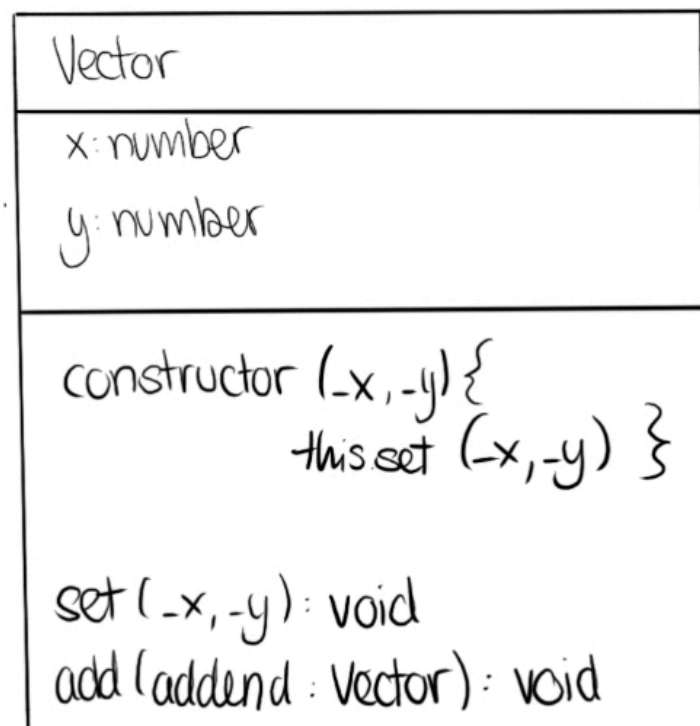 Vector
x: number
y: number
constructor (_x, _y) {
this.set (_x, _y) }
set (_x, _y): void
add (addend: Vector): void